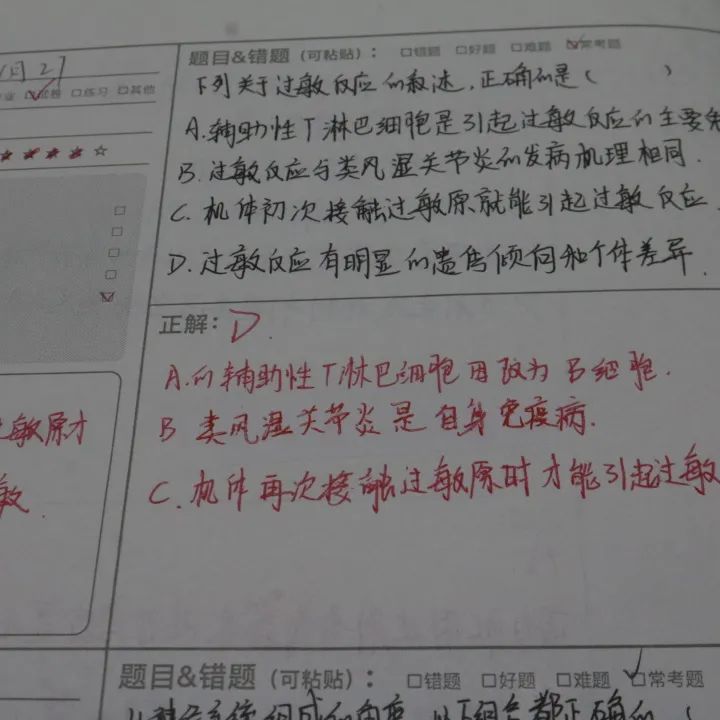 月27
题目&错题（可粘贴）： □错题 □好题 □难题 ☑常考题
业 ☑试卷 □练习 □其他
下列关于过敏反应的叙述，正确的是（ ）
A.辅助性T淋巴细胞是引起过敏反应的主要免
B.过敏反应与类风湿关节炎的发病机理相同.
★★★★☆
C.机体初次接触过敏原就能引起过敏反应.
D.过敏反应有明显的遗传倾向和个体差异.
正解：D.
A.的辅助性T淋巴细胞因改为B细胞.
B 类风湿关节炎是自身免疫病.
敏原才
C.机体再次接触过敏原时才能引起过敏
敏.
题目&错题（可粘贴）： □错题 □好题 □难题 ☑常考题